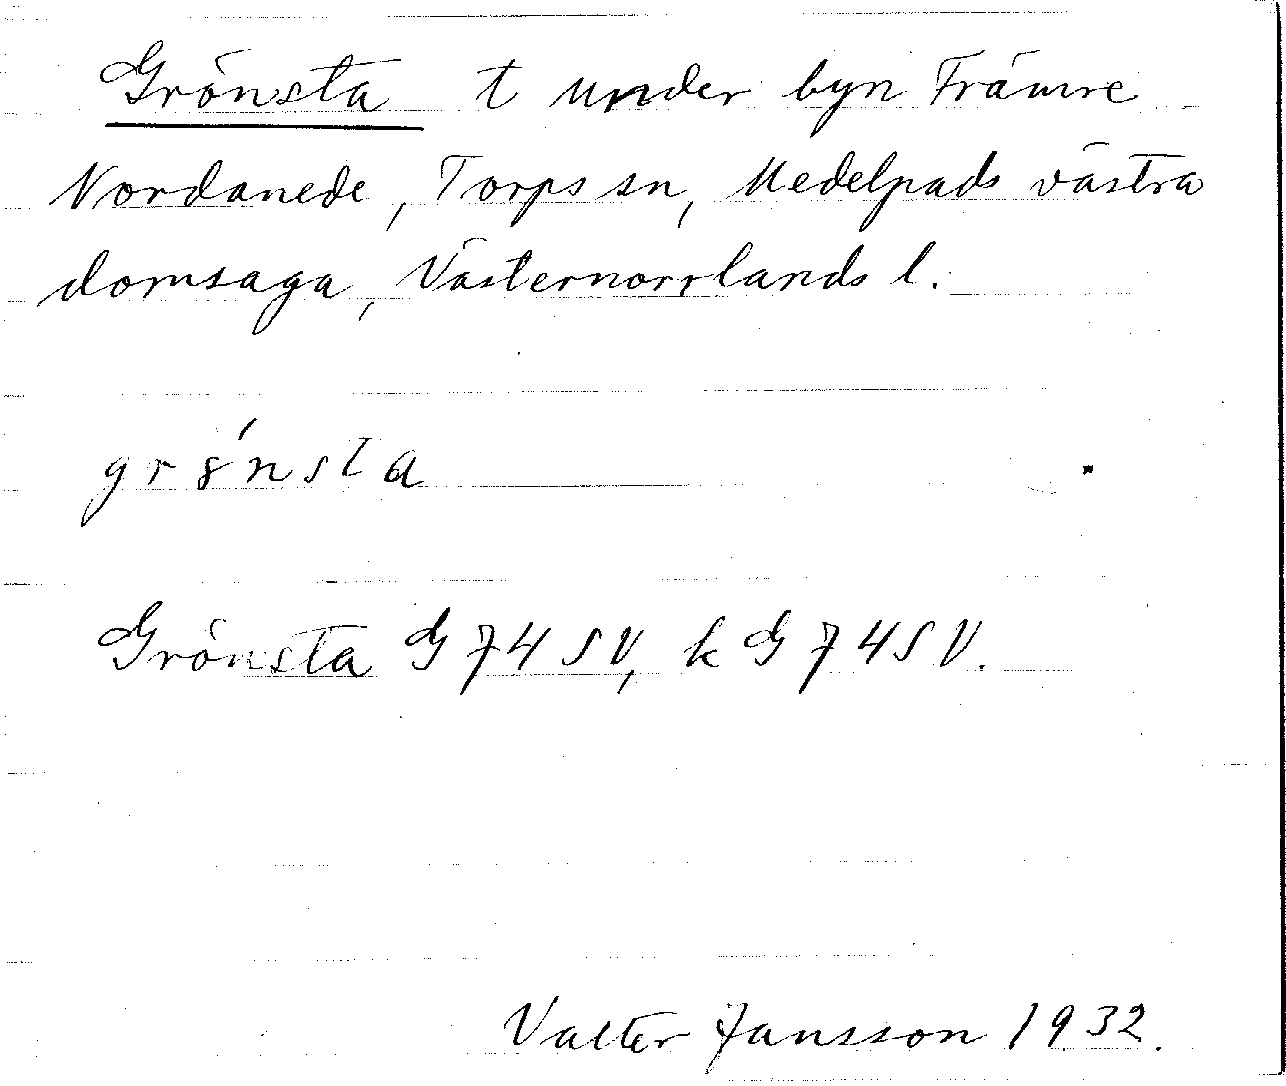 Grönsta t under byn Främre
Nordanede, Torps sn, Medelpads västra
domsaga, Västernorrlands l.
gr8́nsta
Grönsta G74SV, k G74SV.
Valter Jansson 1932.